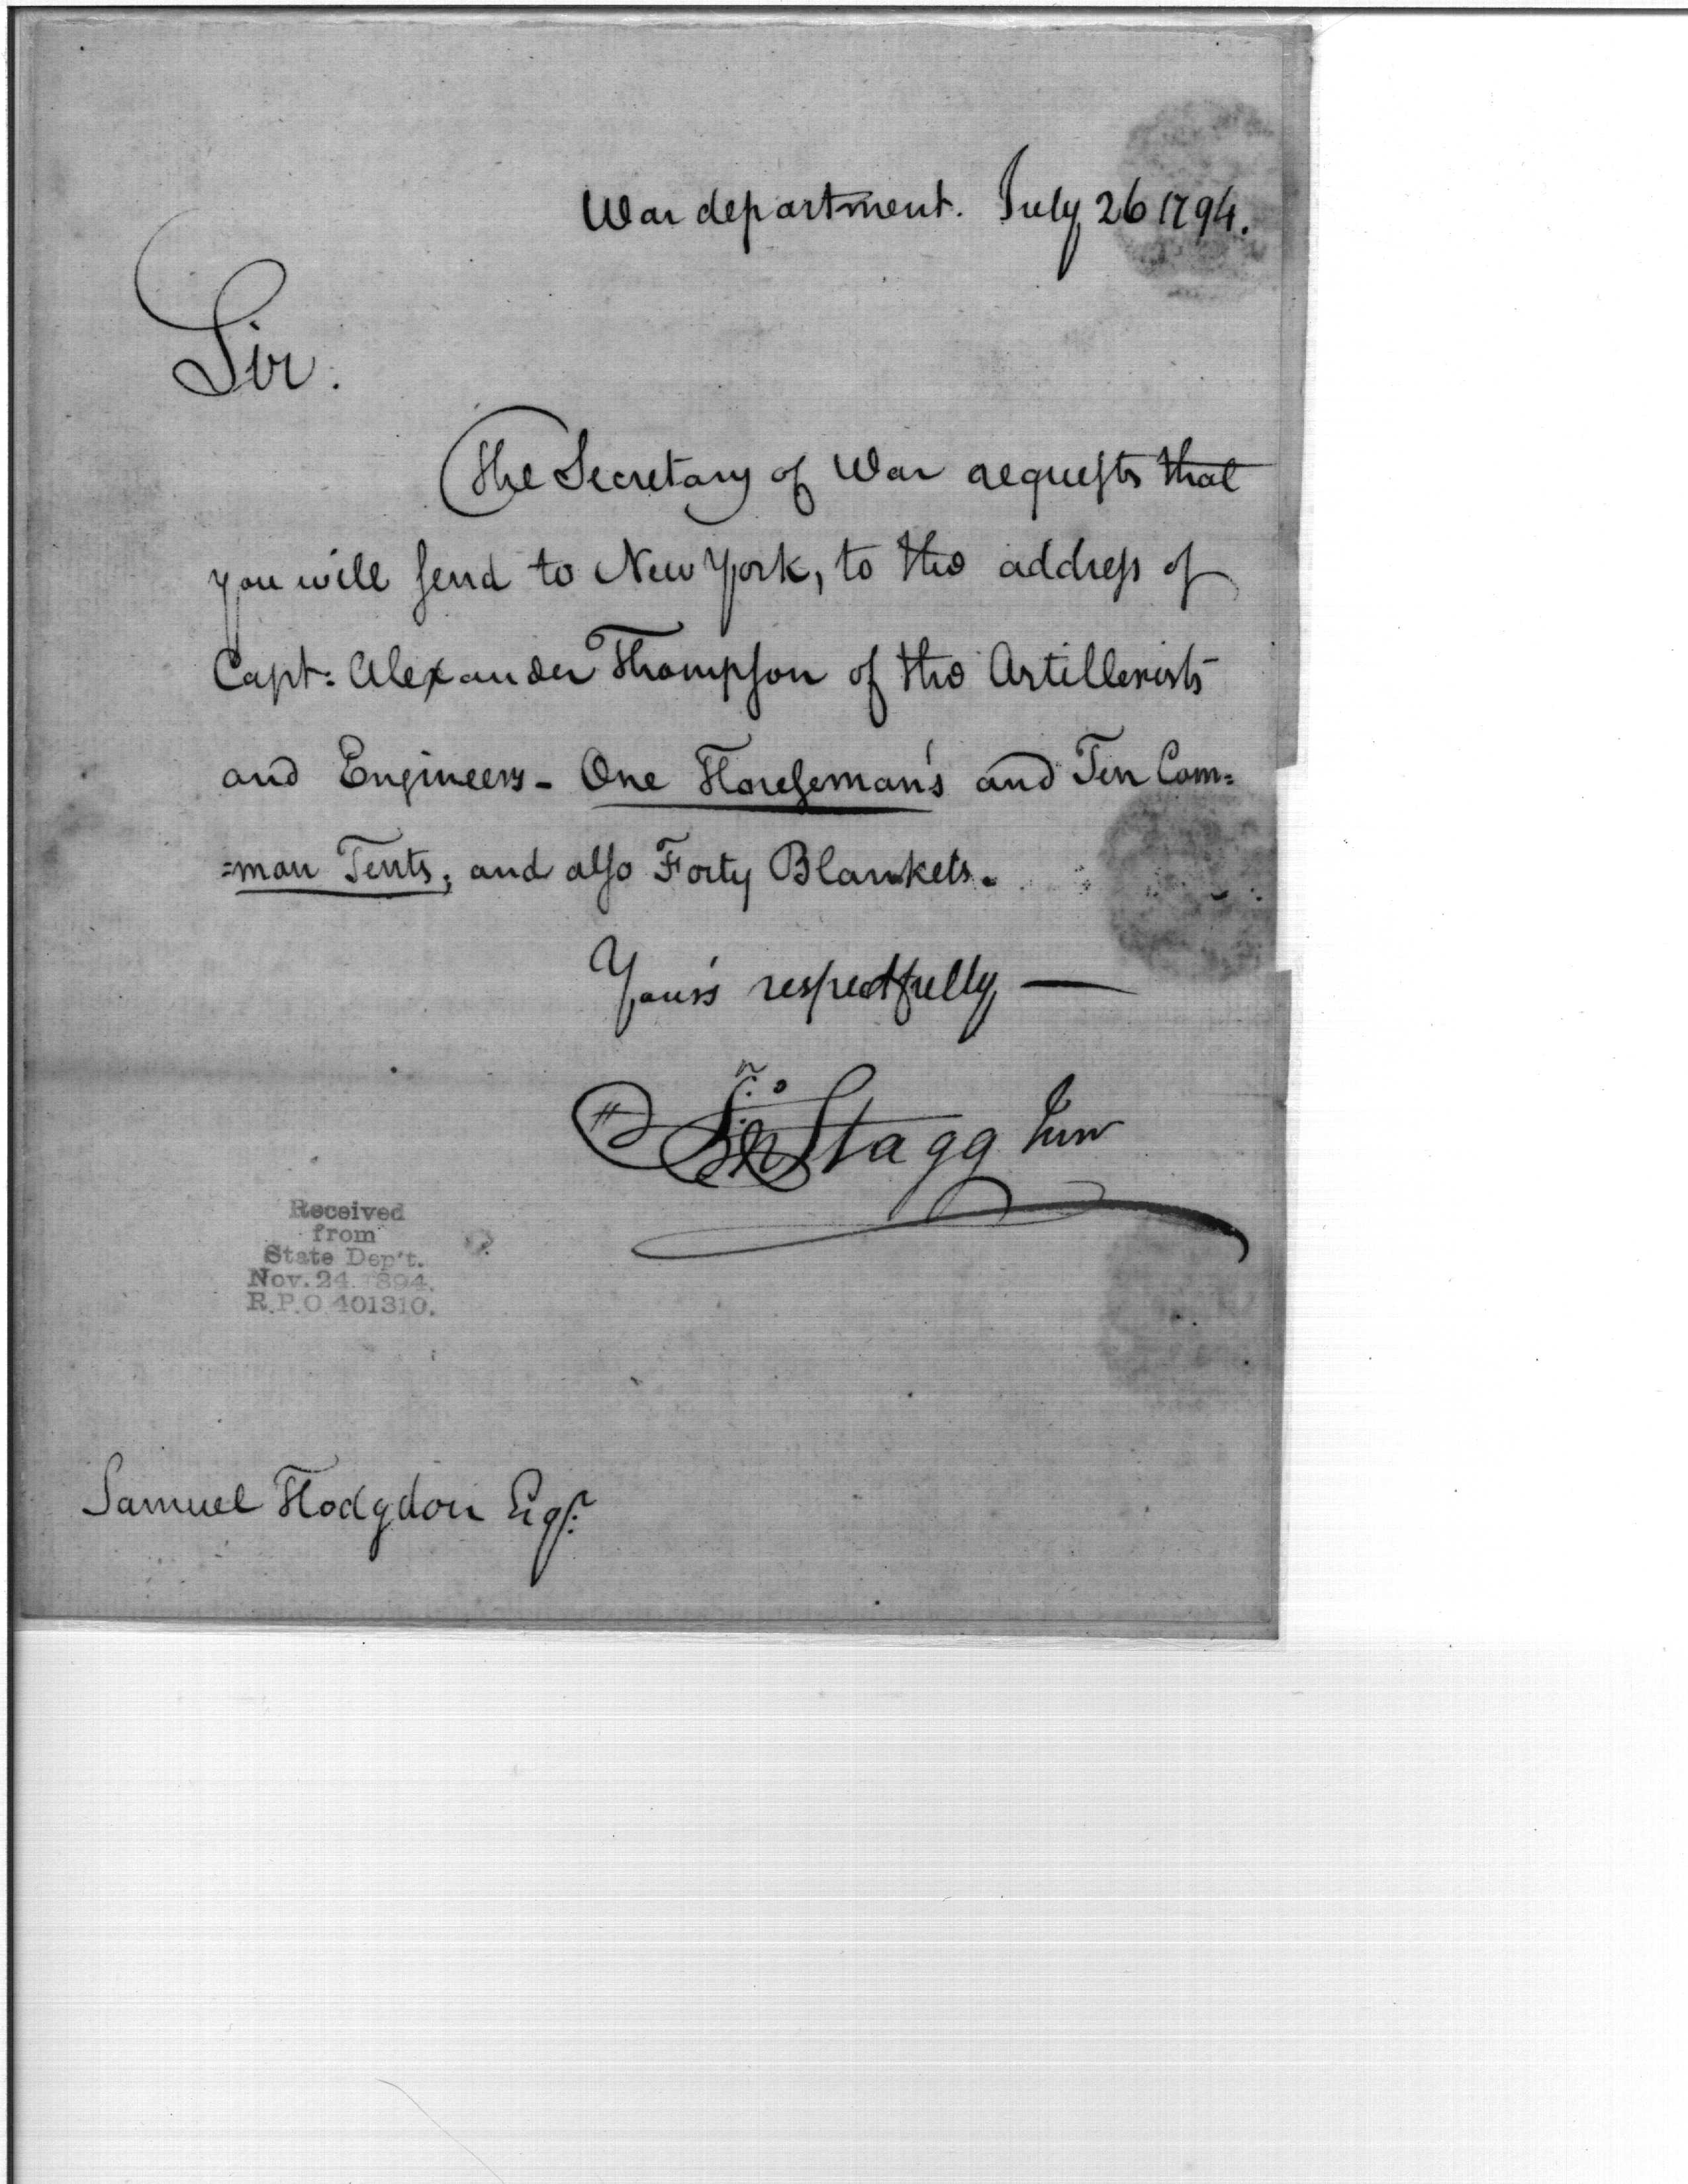 War department. July 26 1794.
Sir.
The Secretary of War requests that
you will send to New York, to the address of
Capt: Alexander Thompson of the Artillerists
and Engineers - One Horseman's and Ten Com=
=mon Tents, and also Forty Blankets.
Your's respectfully —
Jno Stagg Junr
Received
from
State Dep't.
Nov. 24 1894.
R.P.O 401310.
Samuel Hodgdon Esqr.